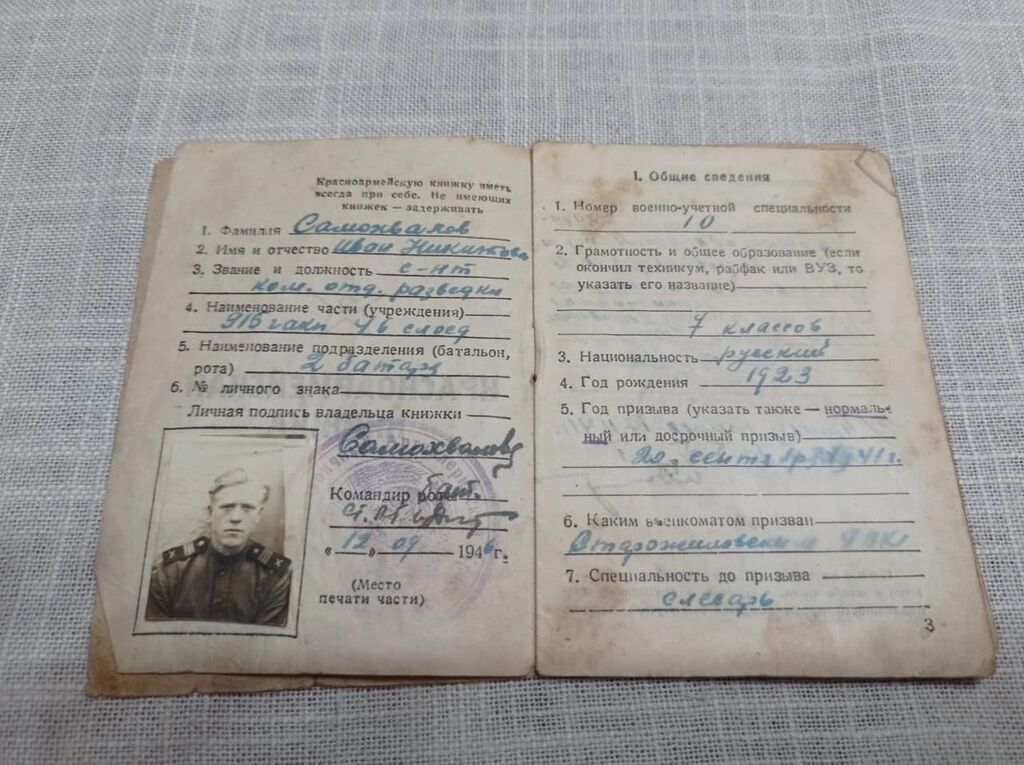 Красноармейскую книжку иметь
всегда при себе. Не имеющих
книжек — задерживать
1. Фамилия Самохвалов
2. Имя и отчество Иван Никитов
3. Звание и должность с-нт
ком. отд. разведки
4. Наименование части (учреждения)
916
5. Наименование подразделения (батальон,
рота) 2 батар
6. № личного знака
Личная подпись владельца книжки
Самохвалов
Командир роты бат.
Ст. л-т
«12» 09 1946 г.
(Место
печати части)
1. Общие сведения
1. Номер военно-учетной специальности
10
2. Грамотность и общее образование (если
окончил техникум, рабфак или ВУЗ, то
указать его название)
7 классов
3. Национальность русский
4. Год рождения 1923
5. Год призыва (указать также — нормаль-
ный или досрочный призыв)
20. сентября 1941 г.
6. Каким военкоматом призван
Старожиловским РВК
7. Специальность до призыва
слесарь
3